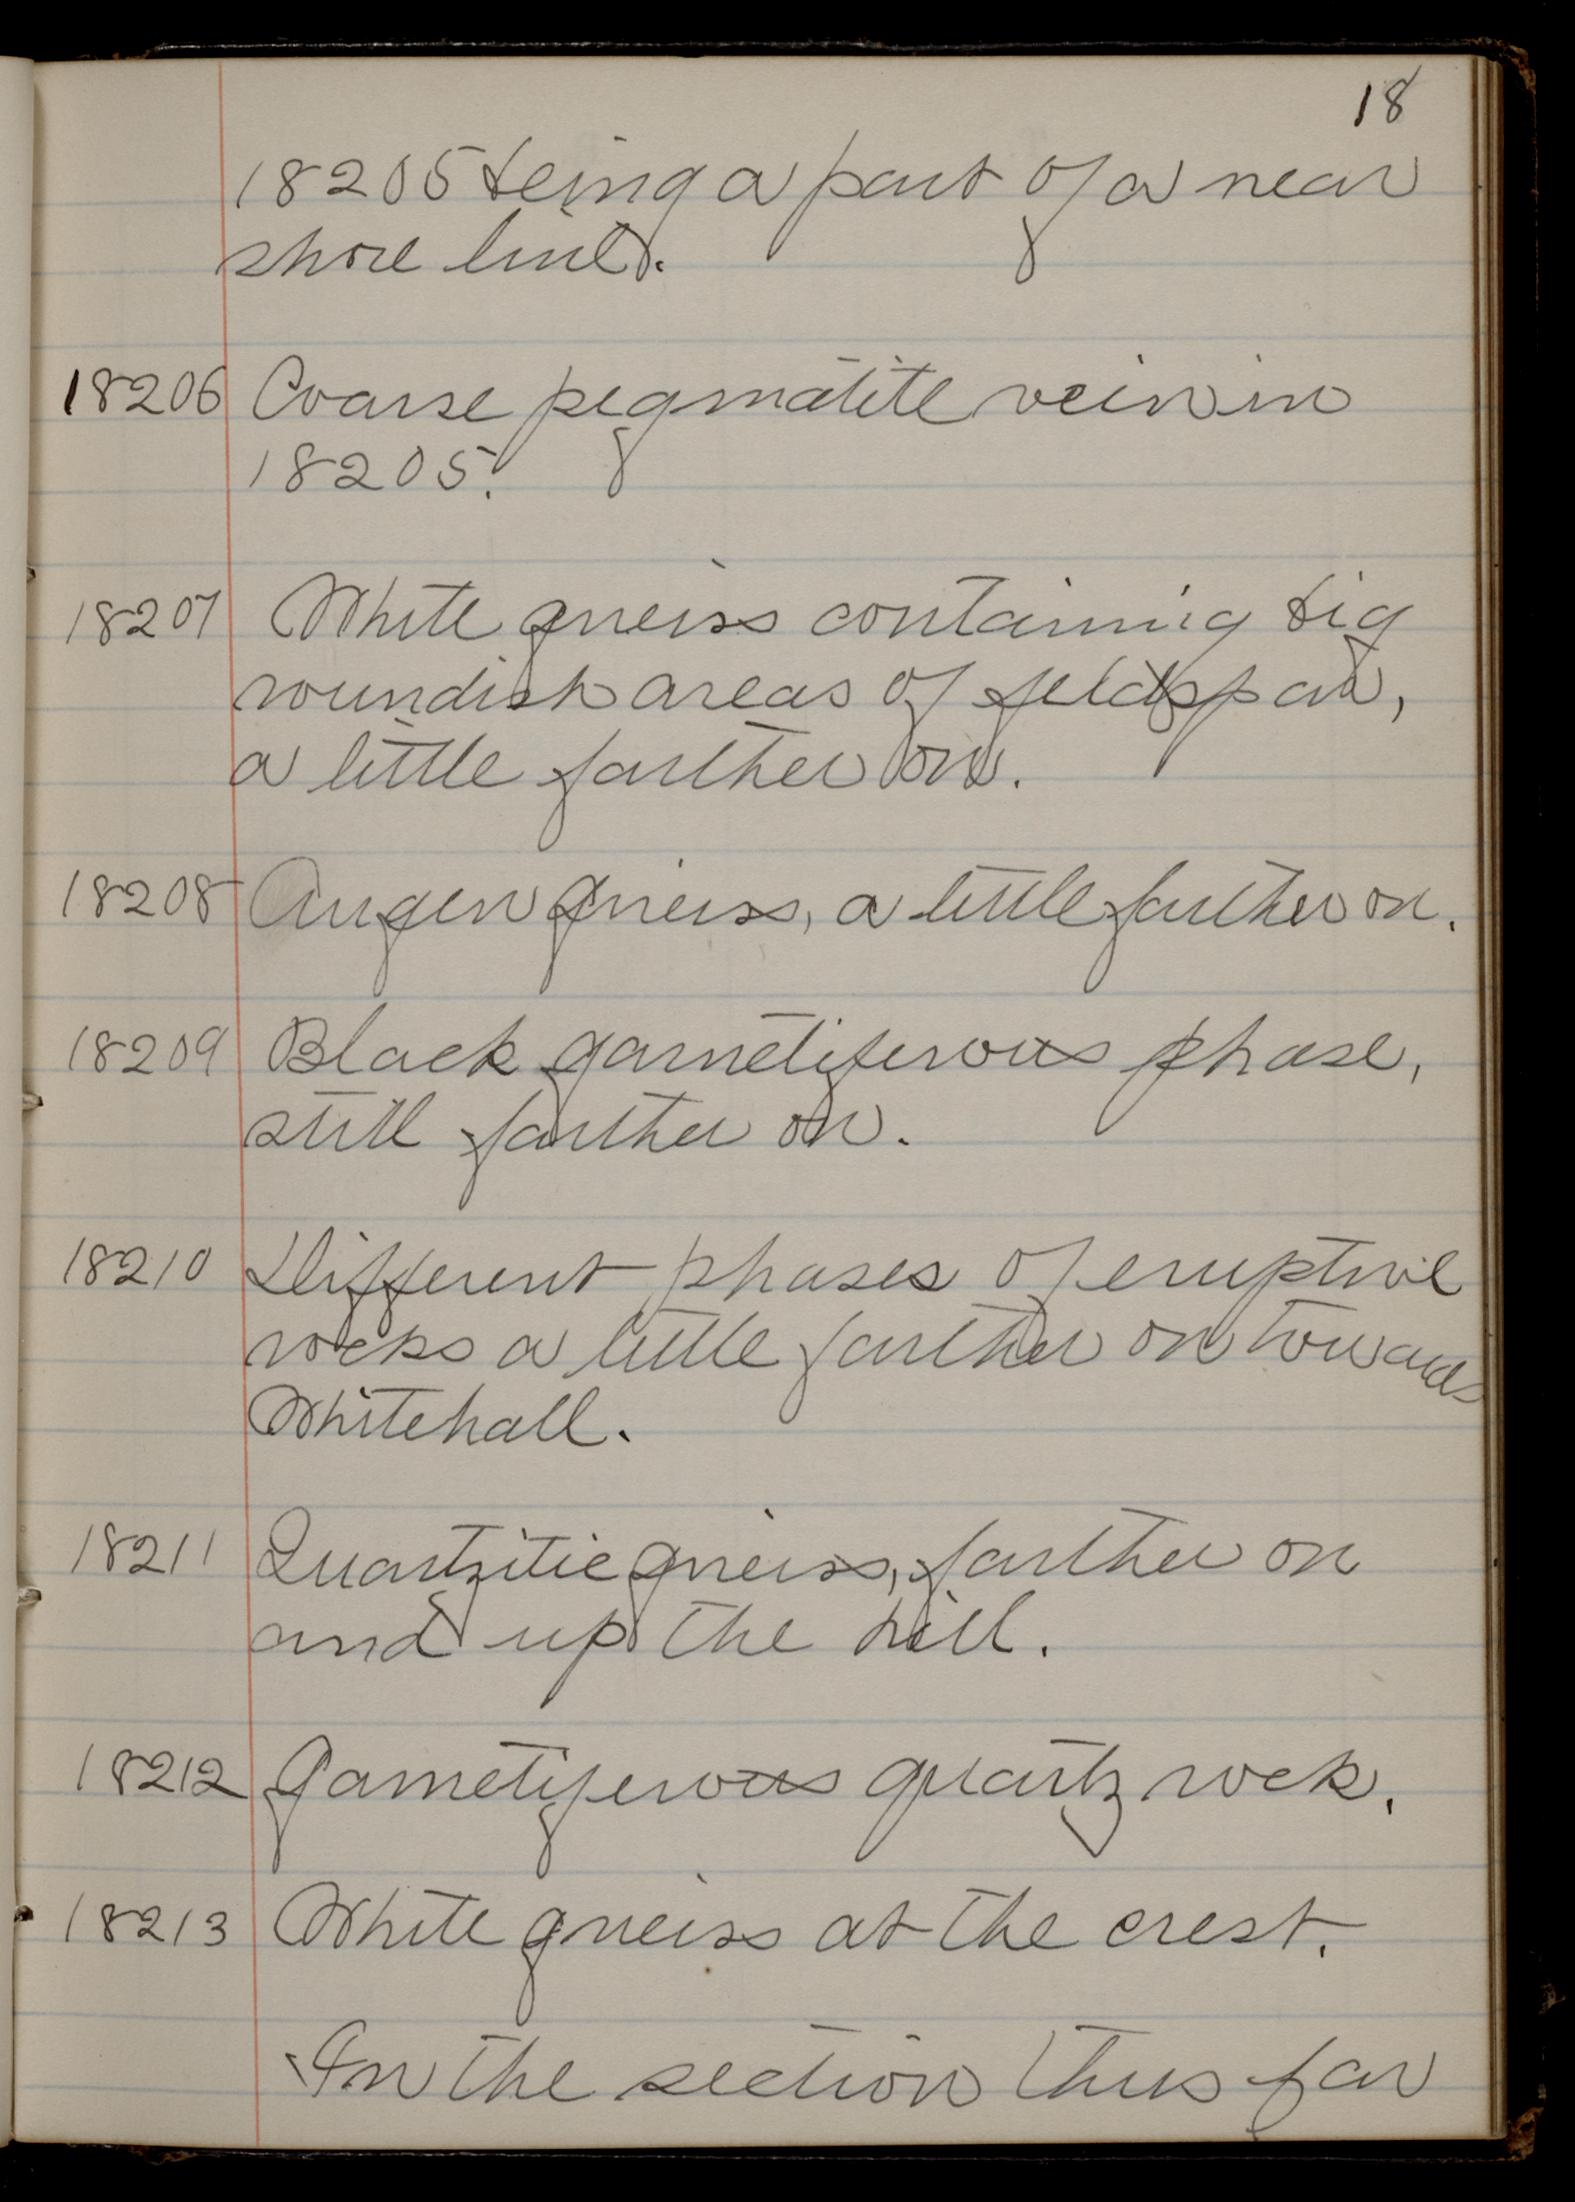 18
18205 being a part of a near
shore line.
18206 Coarse pegmatite vein in
18205.
18207 White gneiss containing big
roundish areas of feldspar,
a little farther on.
18208 Augen gneiss, a little farther on.
18209 Black garnetiferous phase,
still farther on.
18210 Different phases of eruptive
rocks a little farther on towards
Whitehall.
18211 Quartzitic gneiss, farther on
and up the hill.
18212 Garnetiferous quartz rock.
18213 White gneiss at the crest.
In the section thus far